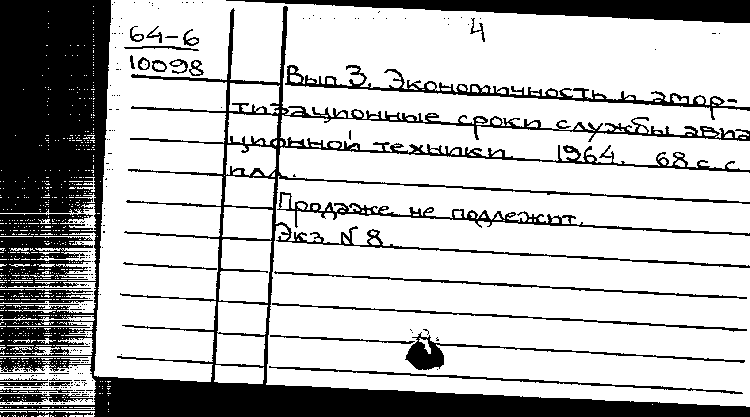 4
64-6
10098
Вып. 3. Экономичность и амор-
тизационные сроки службы авиа
ционной техники 1964. 68 с. с
илл.
Продаже не подлежит.
Экз. N 8.